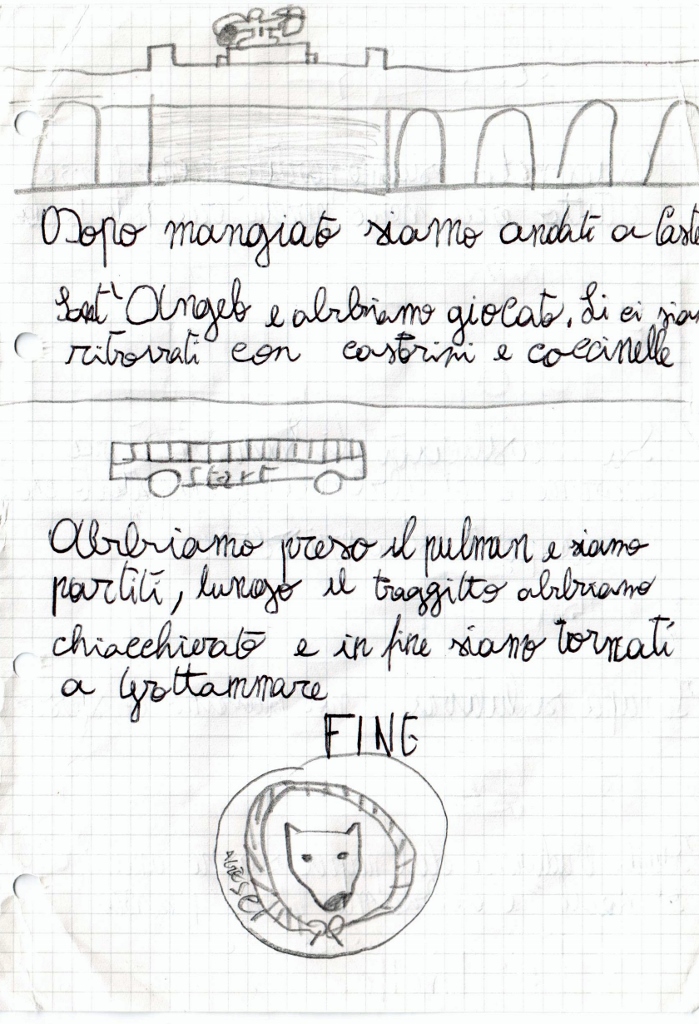 Dopo mangiato siamo andati a Caste
Sant' Angelo e abbiamo giocato. Li ci sia
ritrovati con castorini e coccinelle
Start
Abbiamo preso il pulman e siamo
partiti, lungo il traggitto abbiamo
chiacchierato e in fine siamo tornati
a Grottammare
FINE